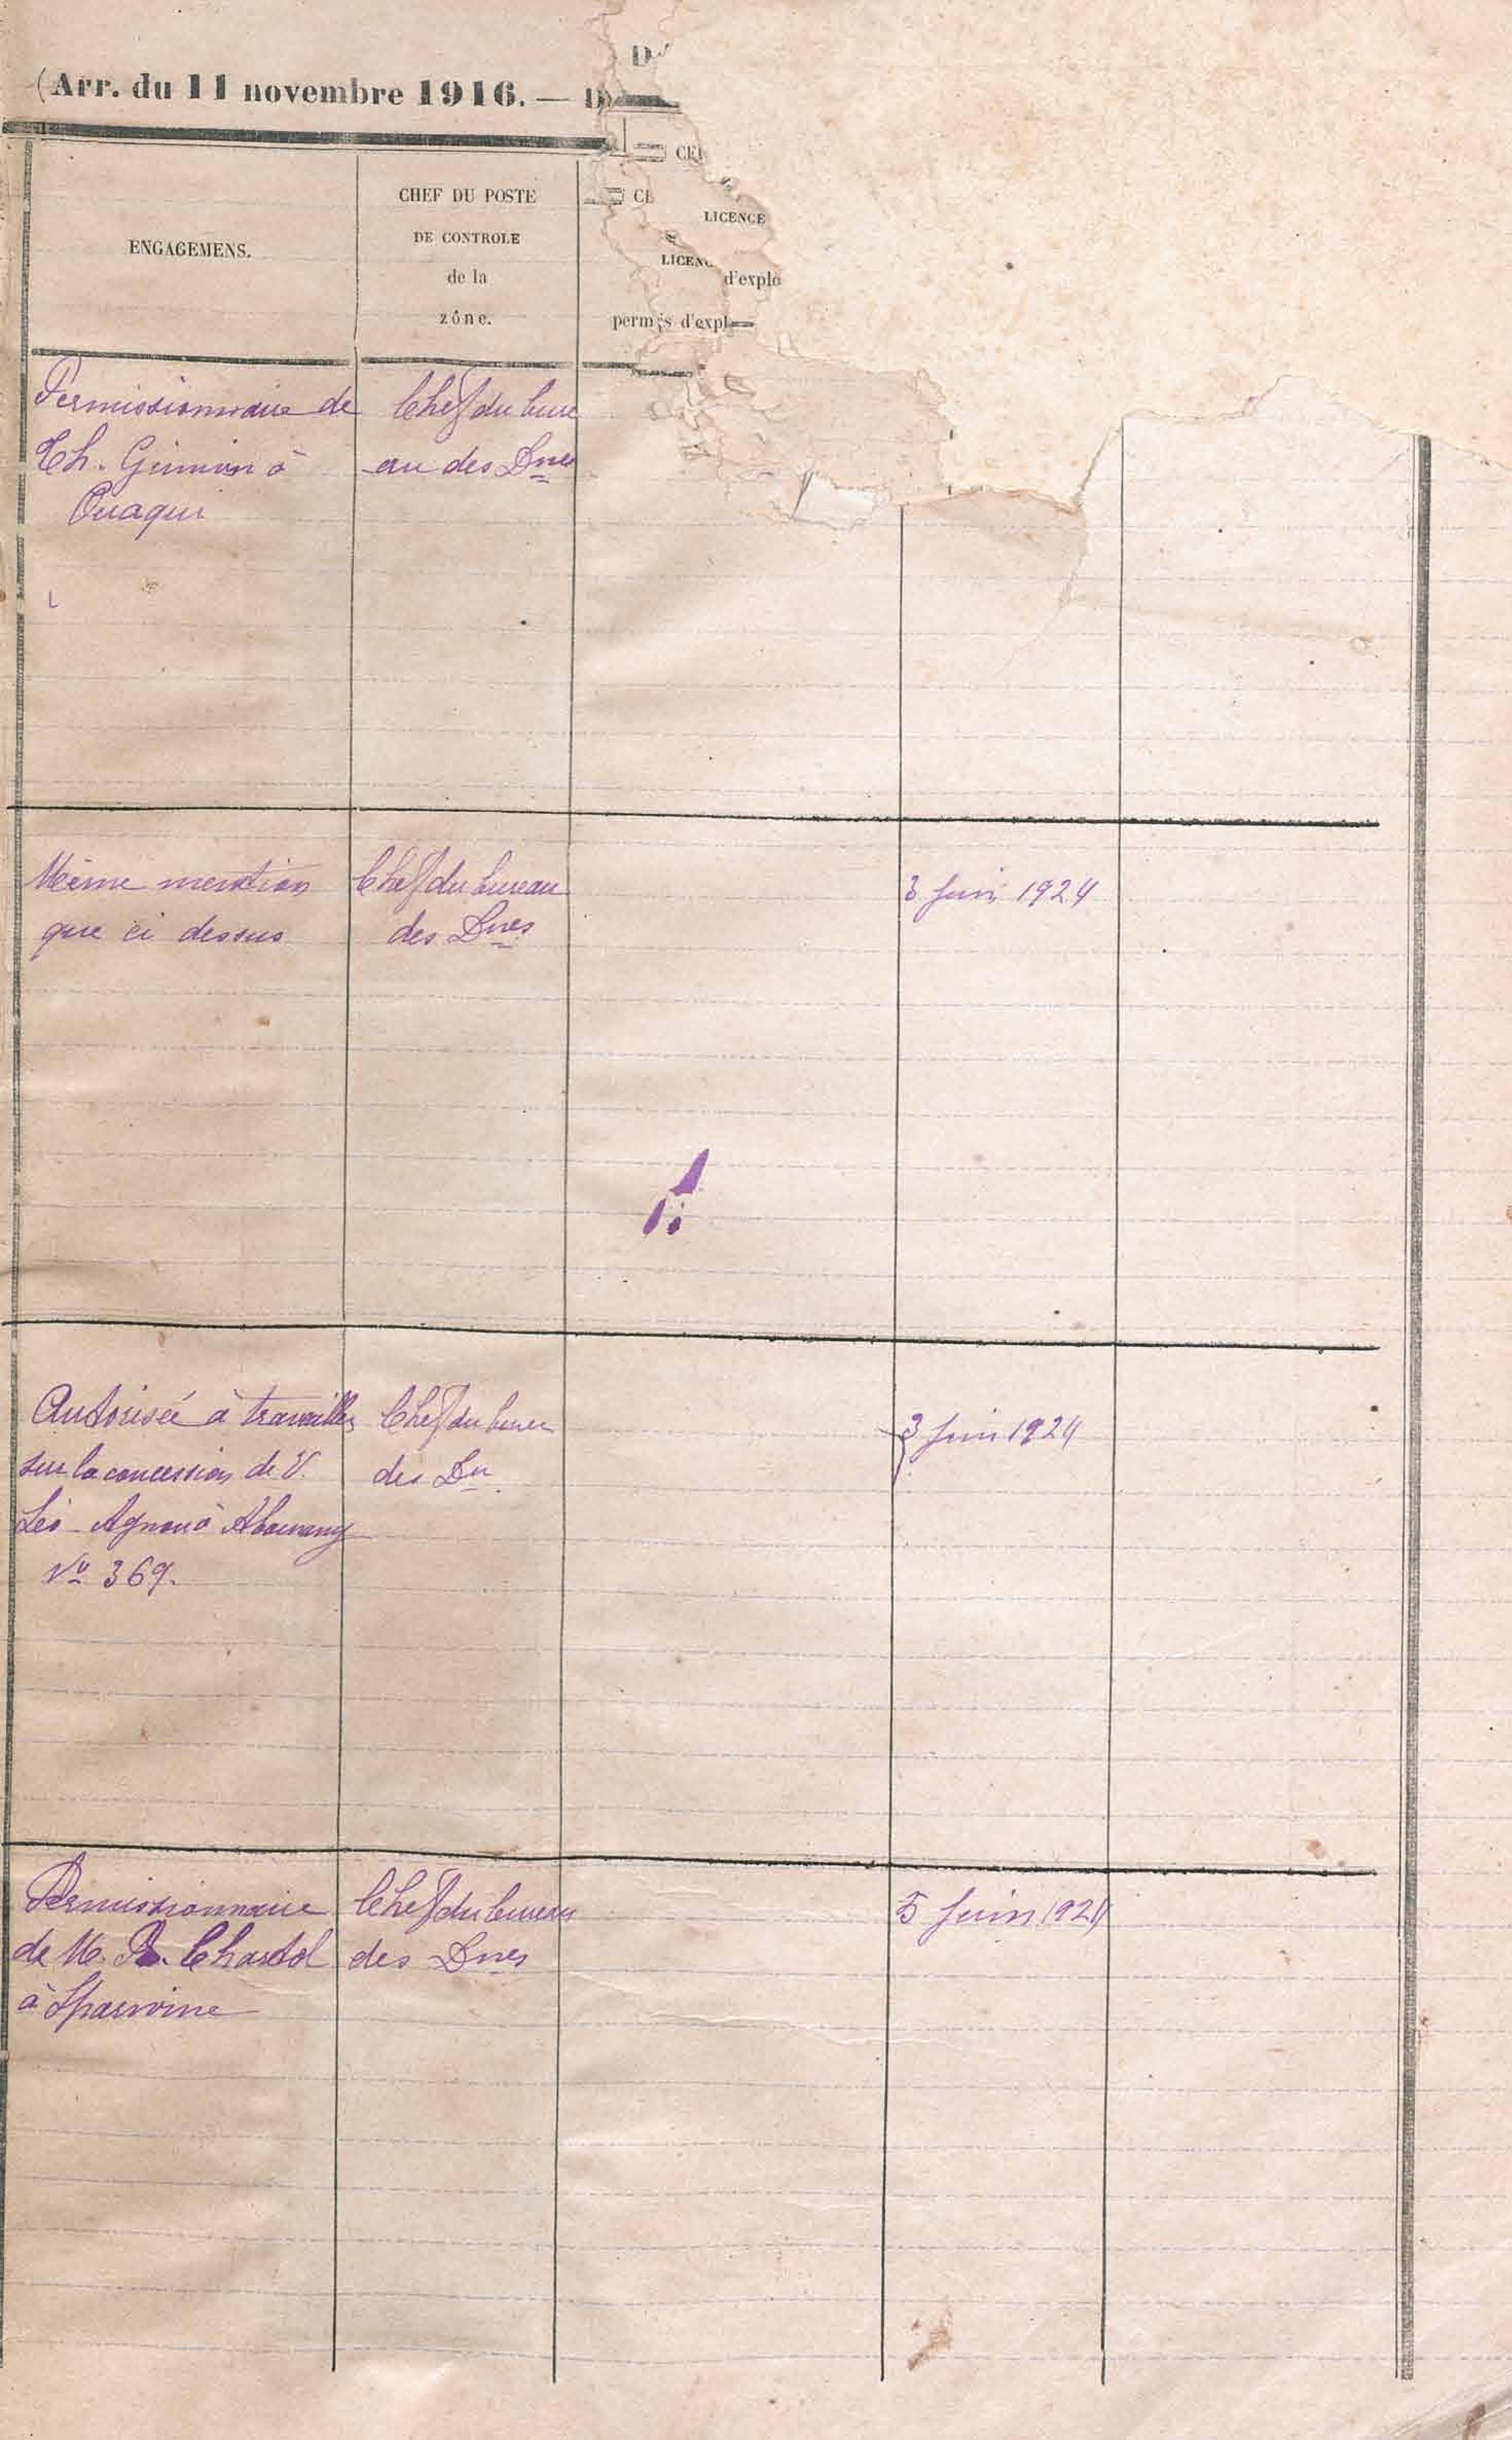 (Arr. du 11 novembre 1916. —
ENGAGEMENS.
CHEF DU POSTE
DE CONTROLE
de la
zône.
LICENCE
d'explo
permis d'expl
Permissionnaire de
Th. à
Ouaqui
Chef du bure
au des Dnes
Même mention
que ci dessus
Chef du bureau
des Dnes
3 Juin 1924
Autorisée à travailler
sur la concession de V.
Léo Agnou à
No 369.
Chef du bureau
des Dn
3 Juin 1924
Permissionnaire
de M. Chartol
à Sparwine
Chef du bureau
des Dnes
5 Juin 1924